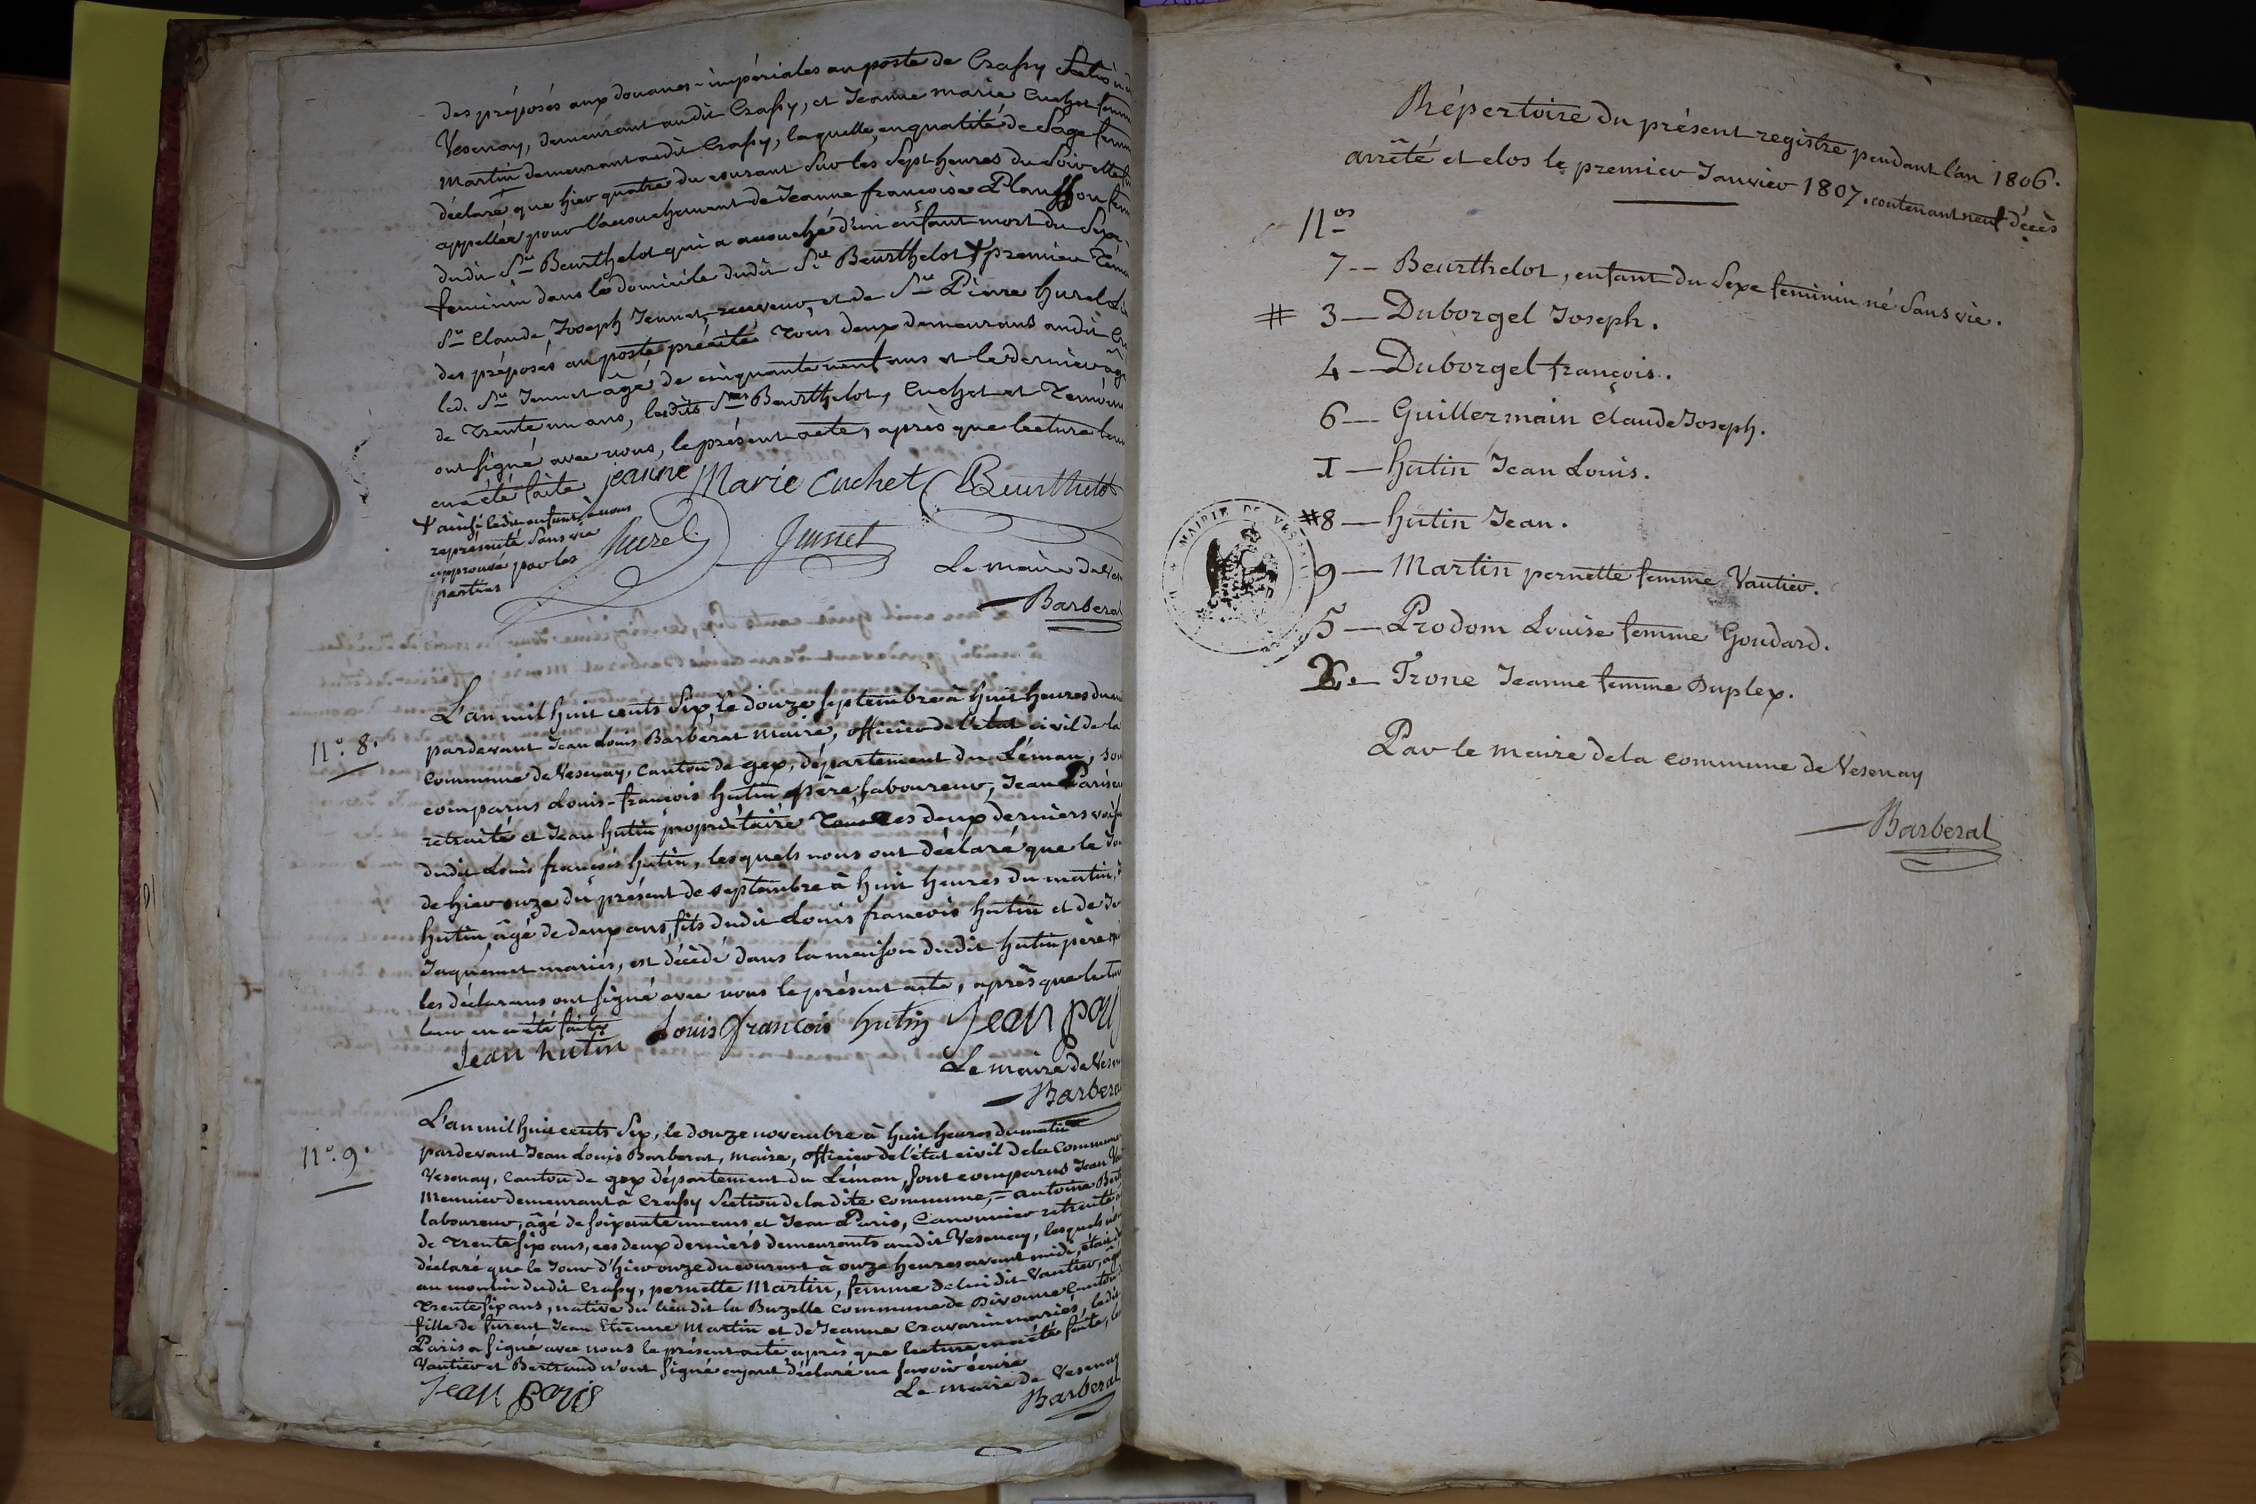 des préposés aux douanes impériales au poste de Crassy
Vesenay, demeurant audit Crassy, et Jeanne marie Cuchet
Martin demeurant audit Crassy, laquelle en qualité de Sage
déclaré que hier quatre du courant sur les Sept heures du Soir
appellée pour l'accouchement de Jeanne françoise
dudit Sr. Beurthelot qui a accouché d'un enfant mort du Sexe
feminin dans le domicile dudit Sr. Beurthelot + premier
Sr. Claude, Joseph Jeunet, receveur, et de Sr. Pierre hurel
des préposés au poste précité tous deux demeurans audit
led. Sr. Jeunet âgé de cinquante neuf ans et le dernier
de Trente un ans, lesdits Srs. Beurthelot, Cuchet et
ont signé avec nous, le présent acte, après que lecture
en a été faite jeanne Marie Cuchet Beurthelot
+ ainsi ledit enfant à nous
représenté Sans vie
approuvé par les
parties
hurel Junet
Le maire de
Barberat
N°. 8.
L'an mil huit cents Six, le douze septembre à huit heures du
pardevant Jean Louis Barberat Maire, officier de l'état civil de la
commune de Vesenay, canton de gex, département du Léman,
comparus Louis-françois hutin père, laboureur, Jean Paris
retraité et Jean hutin propriétaire Tous les deux derniers
dudit Louis françois hutin, lesquels nous ont déclaré que le
de hier onze du présent de septembre à huit heures du matin,
hutin âgé de deux ans, fils dudit Louis francois hutin et de
Jaquemet mariés, est décédé dans la maison dudit hutin père
les déclarans ont signé avec nous le présent acte, après que
leur en a été faite Louis françois hutin Jean
Jean hutin
Le maire de
Barberat
N°. 9.
L'an mil huit cents Six, le douze novembre à huit heures du matin
pardevant Jean Louis Barberat, maire, officier de l'état civil de la Commune
Vesenay, Canton de gex département du Léman, sont comparus Jean
Meunier demeurant à Crassy Section de la dite commune, = antoine
laboureur, âgé de soixante un ans, et Jean Paris, Canonnier retraité
de Trente six ans, ces deux derniers demeurants audit Vesenay, lesquels
déclaré que le Jour d'hier onze du courant à onze heures avant midi,
au moulin dudit Crassy, pernette Martin, femme de lui dit Vautier,
Trente six ans, native du lieu dit la Buzette Commune de Divonne Canton
fille de furent Jean Etienne Martin et de Jeanne Cravarin mariés,
Paris a signé avec nous le présent acte après que lecture en a été faite,
Vautier et Bertrand n'ont signé ayant déclaré ne savoir écrire
Jean Paris
Le maire de Vesenay
Barberat
Répertoire du présent registre pendant l'an 1806.
arrêté et clos le premier Janvier 1807. contenant neuf décès
N.os
7 -- Beurthelot, enfant du Sexe feminin né Sans vie.
# 3 — Duborgel Joseph.
4 — Duborgel françois.
6 — Guillermain Claude Joseph.
1 — hutin Jean Louis.
#8 — hutin Jean.
9 — Martin pernette femme Vautier.
5 — Prodom Louise femme Goudard.
2 — Trone Jeanne femme Duplex.
MAIRIE DE
Par le maire de la commune de Vesenay
Barberat